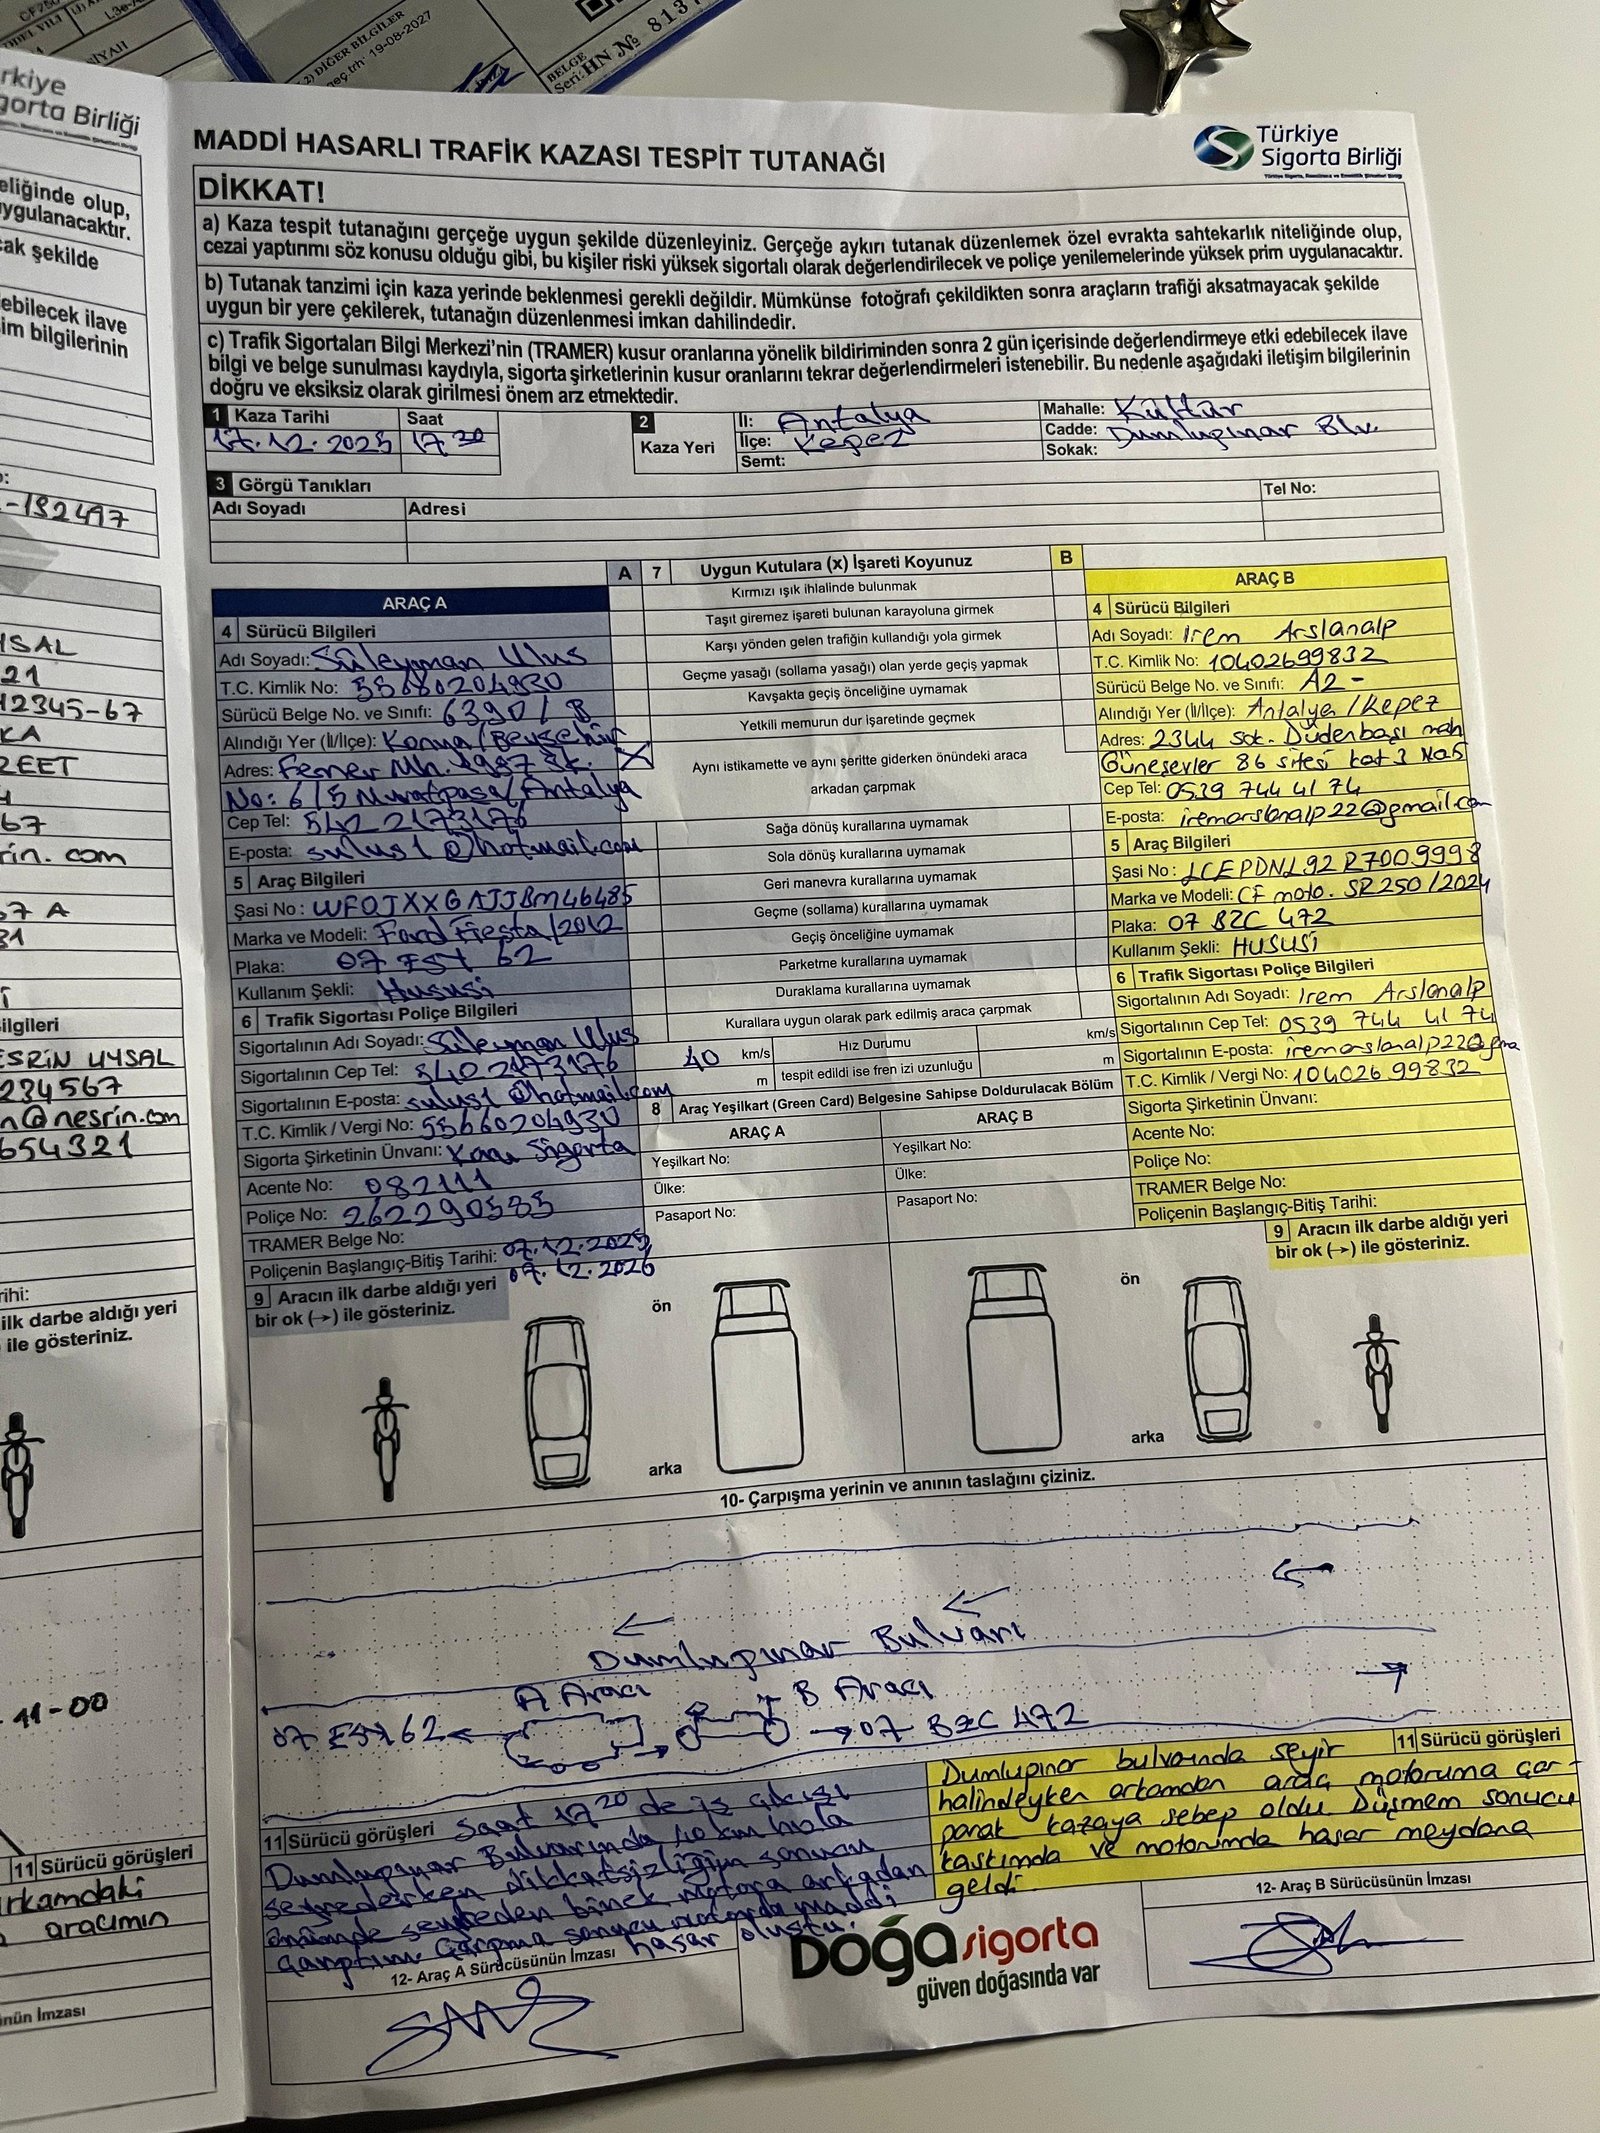 CF250
L3e-A
MODEL YILI
SİYAH
2) DİĞER BİLGİLER
geç trh: 19-08-2027
BELGE
Seri: HN № 8137
Türkiye
Sigorta Birliği
eliğinde olup,
uygulanacaktır.
cak şekilde
ebilecek ilave
im bilgilerinin
-132497
YSAL
21
12345-67
KA
ZEET
67
rin. com
67 A
31
ilgileri
ESRİN UYSAL
234567
n@nesrin.com
654321
rihi:
ilk darbe aldığı yeri
ile gösteriniz.
-11-00
11 Sürücü görüşleri
arkamdaki
aracımın
ünün İmzası
MADDİ HASARLI TRAFİK KAZASI TESPİT TUTANAĞI
Türkiye
Sigorta Birliği
Türkiye Sigorta, Reasürans ve Emeklilik Şirketleri Birliği
DİKKAT!
a) Kaza tespit tutanağını gerçeğe uygun şekilde düzenleyiniz. Gerçeğe aykırı tutanak düzenlemek özel evrakta sahtekarlık niteliğinde olup,
cezai yaptırımı söz konusu olduğu gibi, bu kişiler riski yüksek sigortalı olarak değerlendirilecek ve poliçe yenilemelerinde yüksek prim uygulanacaktır.
b) Tutanak tanzimi için kaza yerinde beklenmesi gerekli değildir. Mümkünse fotoğrafı çekildikten sonra araçların trafiği aksatmayacak şekilde
uygun bir yere çekilerek, tutanağın düzenlenmesi imkan dahilindedir.
c) Trafik Sigortaları Bilgi Merkezi'nin (TRAMER) kusur oranlarına yönelik bildiriminden sonra 2 gün içerisinde değerlendirmeye etki edebilecek ilave
bilgi ve belge sunulması kaydıyla, sigorta şirketlerinin kusur oranlarını tekrar değerlendirmeleri istenebilir. Bu nedenle aşağıdaki iletişim bilgilerinin
doğru ve eksiksiz olarak girilmesi önem arz etmektedir.
1 Kaza Tarihi Saat
17.12.2025 17.20
2 Kaza Yeri
İl: Antalya
İlçe: Kepez
Semt:
Mahalle: Kültür
Cadde: Dumlupınar Blv.
Sokak:
3 Görgü Tanıkları
Adı Soyadı Adresi Tel No:
ARAÇ A
4 Sürücü Bilgileri
Adı Soyadı: Süleyman Ulus
T.C. Kimlik No: 55660204930
Sürücü Belge No. ve Sınıfı: 63901 B
Alındığı Yer (İl/İlçe): Konya / Beyşehir
Adres: Fener Mh. 1987 Sk.
No: 6/5 Muratpaşa/Antalya
Cep Tel: 542 2173176
E-posta: sulus1@hotmail.com
5 Araç Bilgileri
Şasi No: WF0JXXGAJJBM46485
Marka ve Modeli: Ford Fiesta/2012
Plaka: 07 EST 62
Kullanım Şekli: Hususi
6 Trafik Sigortası Poliçe Bilgileri
Sigortalının Adı Soyadı: Süleyman Ulus
Sigortalının Cep Tel: 5402173176
Sigortalının E-posta: sulus1@hotmail.com
T.C. Kimlik / Vergi No: 55660204930
Sigorta Şirketinin Ünvanı: Sigorta
Acente No: 082111
Poliçe No: 262290535
TRAMER Belge No:
Poliçenin Başlangıç-Bitiş Tarihi: 07.12.2025
07.12.2026
9 Aracın ilk darbe aldığı yeri
bir ok (→) ile gösteriniz.
A 7 Uygun Kutulara (x) İşareti Koyunuz B
Kırmızı ışık ihlalinde bulunmak
Taşıt giremez işareti bulunan karayoluna girmek
Karşı yönden gelen trafiğin kullandığı yola girmek
Geçme yasağı (sollama yasağı) olan yerde geçiş yapmak
Kavşakta geçiş önceliğine uymamak
Yetkili memurun dur işaretinde geçmek
X Aynı istikamette ve aynı şeritte giderken önündeki araca
arkadan çarpmak
Sağa dönüş kurallarına uymamak
Sola dönüş kurallarına uymamak
Geri manevra kurallarına uymamak
Geçme (sollama) kurallarına uymamak
Geçiş önceliğine uymamak
Parketme kurallarına uymamak
Duraklama kurallarına uymamak
Kurallara uygun olarak park edilmiş araca çarpmak
40 km/s Hız Durumu km/s
m tespit edildi ise fren izi uzunluğu m
8 Araç Yeşilkart (Green Card) Belgesine Sahipse Doldurulacak Bölüm
ARAÇ A ARAÇ B
Yeşilkart No: Yeşilkart No:
Ülke: Ülke:
Pasaport No: Pasaport No:
ARAÇ B
4 Sürücü Bilgileri
Adı Soyadı: İrem Arslanalp
T.C. Kimlik No: 10402699832
Sürücü Belge No. ve Sınıfı: A2 -
Alındığı Yer (İl/İlçe): Antalya / Kepez
Adres: 2344 sok. Düdenbaşı mah
Güneşevler 86 sitesi kat 3 No:5
Cep Tel: 0539 744 41 74
E-posta: iremarslanalp22@gmail.com
5 Araç Bilgileri
Şasi No: LCEPDNL92R7009998
Marka ve Modeli: CF moto. SR 250 / 2024
Plaka: 07 BZC 472
Kullanım Şekli: HUSUSİ
6 Trafik Sigortası Poliçe Bilgileri
Sigortalının Adı Soyadı: İrem Arslanalp
Sigortalının Cep Tel: 0539 744 41 74
Sigortalının E-posta: iremarslanalp22@gma
T.C. Kimlik / Vergi No: 10402699832
Sigorta Şirketinin Ünvanı:
Acente No:
Poliçe No:
TRAMER Belge No:
Poliçenin Başlangıç-Bitiş Tarihi:
9 Aracın ilk darbe aldığı yeri
bir ok (→) ile gösteriniz.
ön ön
arka arka
10- Çarpışma yerinin ve anının taslağını çiziniz.
Dumlupınar Bulvarı
A Aracı B Aracı
07 EST 62 07 BZC 472
11 Sürücü görüşleri Saat 17 20 de iş çıkışı
Dumlupınar Bulvarında 40 km hızla
seyrederken dikkatsizliğim sonucu
önümde seyreden binek motora arkadan
çarptım. Çarpma sonucu motorda maddi
hasar oluştu.
11 Sürücü görüşleri
Dumlupınar bulvarında seyir
halindeyken arkamdan araç motoruma çar-
parak kazaya sebep oldu. Düşmem sonucu
kaskımda ve motorumda hasar meydana
geldi.
12- Araç A Sürücüsünün İmzası
DOĞA sigorta
güven doğasında var
12- Araç B Sürücüsünün İmzası